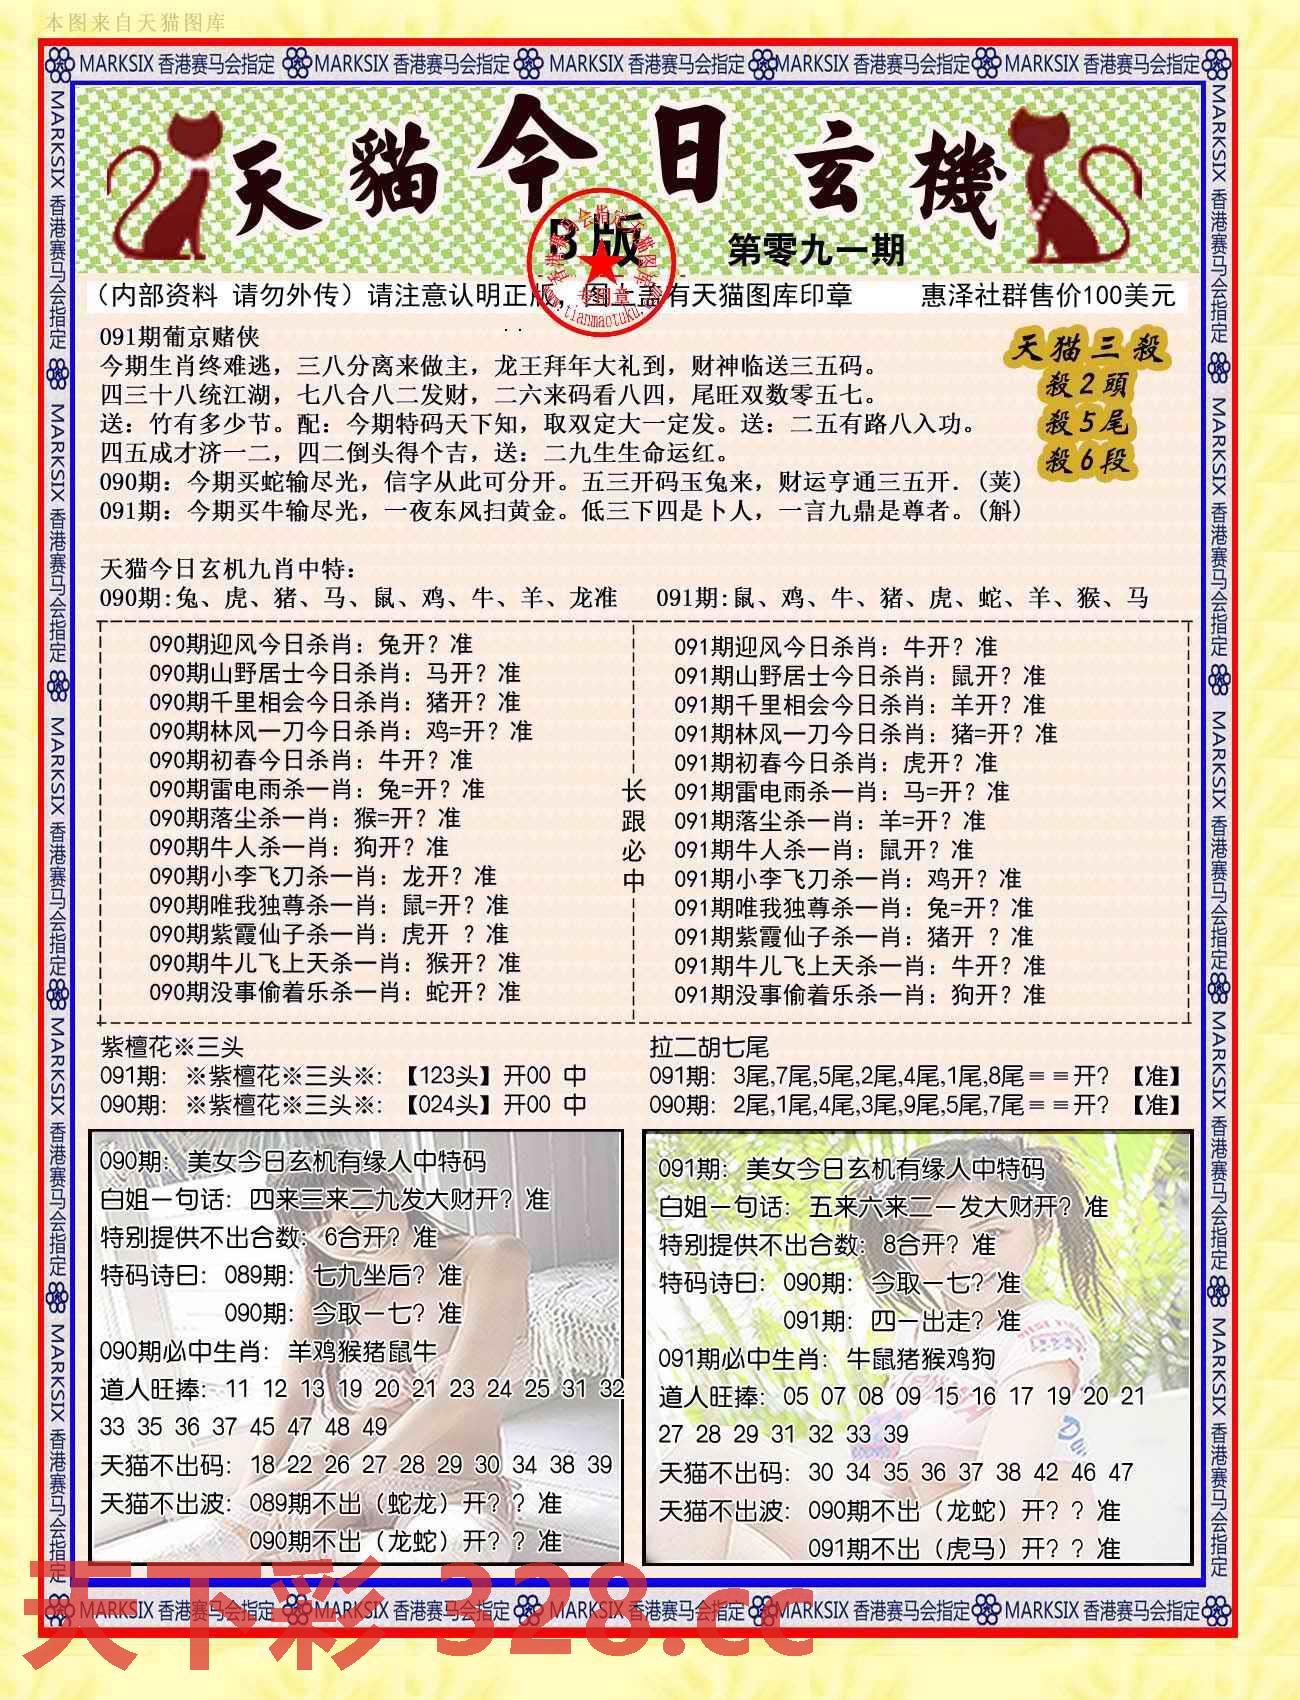 本图来自天猫图库
MARKSIX 香港赛马会指定 MARKSIX 香港赛马会指定 MARKSIX 香港赛马会指定 MARKSIX 香港赛马会指定 MARKSIX 香港赛马会指定
天貓今日玄機
B版
第零九一期
香港赛马会指定天猫图库
专用章
www.tianmaotuku.com
（内部资料 请勿外传）请注意认明正版，图上盖有天猫图库印章 惠泽社群售价100美元
天猫三殺
殺2頭
殺5尾
殺6段
091期葡京赌侠
今期生肖终难逃，三八分离来做主，龙王拜年大礼到，财神临送三五码。
四三十八统江湖，七八合八二发财，二六来码看八四，尾旺双数零五七。
送：竹有多少节。配：今期特码天下知，取双定大一定发。送：二五有路八入功。
四五成才济一二，四二倒头得个吉，送：二九生生命运红。
090期：今期买蛇输尽光，信字从此可分开。五三开码玉兔来，财运亨通三五开．(荚)
091期：今期买牛输尽光，一夜东风扫黄金。低三下四是卜人，一言九鼎是尊者。(斛)
天猫今日玄机九肖中特：
090期:兔、虎、猪、马、鼠、鸡、牛、羊、龙准 091期:鼠、鸡、牛、猪、虎、蛇、羊、猴、马
090期迎风今日杀肖：兔开？准
090期山野居士今日杀肖：马开？准
090期千里相会今日杀肖：猪开？准
090期林风一刀今日杀肖：鸡=开？准
090期初春今日杀肖：牛开？准
090期雷电雨杀一肖：兔=开？准
090期落尘杀一肖：猴=开？准
090期牛人杀一肖：狗开？准
090期小李飞刀杀一肖：龙开？准
090期唯我独尊杀一肖：鼠=开？准
090期紫霞仙子杀一肖：虎开 ？准
090期牛儿飞上天杀一肖：猴开？准
090期没事偷着乐杀一肖：蛇开？准
长跟必中
091期迎风今日杀肖：牛开？准
091期山野居士今日杀肖：鼠开？准
091期千里相会今日杀肖：羊开？准
091期林风一刀今日杀肖：猪=开？准
091期初春今日杀肖：虎开？准
091期雷电雨杀一肖：马=开？准
091期落尘杀一肖：羊=开？准
091期牛人杀一肖：鼠开？准
091期小李飞刀杀一肖：鸡开？准
091期唯我独尊杀一肖：兔=开？准
091期紫霞仙子杀一肖：猪开 ？准
091期牛儿飞上天杀一肖：牛开？准
091期没事偷着乐杀一肖：狗开？准
紫檀花※三头
091期：※紫檀花※三头※：【123头】开00 中
090期：※紫檀花※三头※：【024头】开00 中
拉二胡七尾
091期：3尾,7尾,5尾,2尾,4尾,1尾,8尾≡≡开？【准】
090期：2尾,1尾,4尾,3尾,9尾,5尾,7尾≡≡开？【准】
090期：美女今日玄机有缘人中特码
白姐一句话：四来三来二九发大财开？准
特别提供不出合数：6合开？准
特码诗曰：089期：七九坐后？准
090期：今取一七？准
090期必中生肖：羊鸡猴猪鼠牛
道人旺捧：11 12 13 19 20 21 23 24 25 31 32
33 35 36 37 45 47 48 49
天猫不出码：18 22 26 27 28 29 30 34 38 39
天猫不出波：089期不出（蛇龙）开？？准
090期不出（龙蛇）开？？准
091期：美女今日玄机有缘人中特码
白姐一句话：五来六来二一发大财开？准
特别提供不出合数：8合开？准
特码诗曰：090期：今取一七？准
091期：四一出走？准
091期必中生肖：牛鼠猪猴鸡狗
道人旺捧：05 07 08 09 15 16 17 19 20 21
27 28 29 31 32 33 39
天猫不出码：30 34 35 36 37 38 42 46 47
天猫不出波：090期不出（龙蛇）开？？准
091期不出（虎马）开？？准
MARKSIX 香港赛马会指定 MARKSIX 香港赛马会指定 MARKSIX 香港赛马会指定 MARKSIX 香港赛马会指定 MARKSIX 香港赛马会指定
MARKSIX 香港赛马会指定 MARKSIX 香港赛马会指定 MARKSIX 香港赛马会指定 MARKSIX 香港赛马会指定 MARKSIX 香港赛马会指定
MARKSIX 香港赛马会指定 MARKSIX 香港赛马会指定 MARKSIX 香港赛马会指定 MARKSIX 香港赛马会指定 MARKSIX 香港赛马会指定
天下彩 328.cc